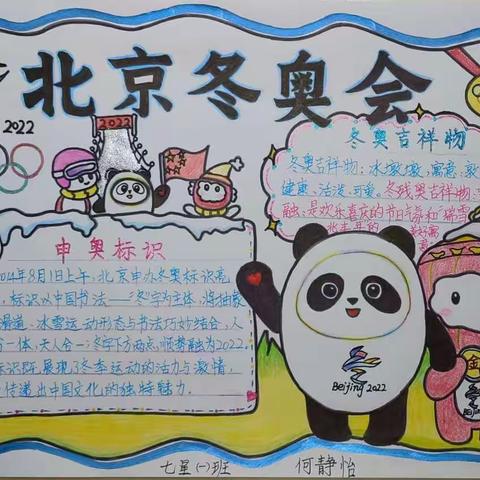 北京冬奥会
2022
2022
冬奥吉祥物
冬奥吉祥物：冰墩墩，寓意，敦
健康、活泼、可爱。冬残奥吉祥物：
融，是欢乐喜庆的节日气氛和瑞雪
申奥标识
14年8月1日上午，北京申办冬奥标识亮
，标识以中国书法——"冬"字为主体，将抽象
滑道、冰雪运动形态与书法巧妙结合，人
一体，天人合一"冬"字下方两点，顺势融为2022.
标识既展现了冬季运动的活力与激情，
传递出中国文化的独特魅力.
Beijing 2022
七星(一)班 何静怡